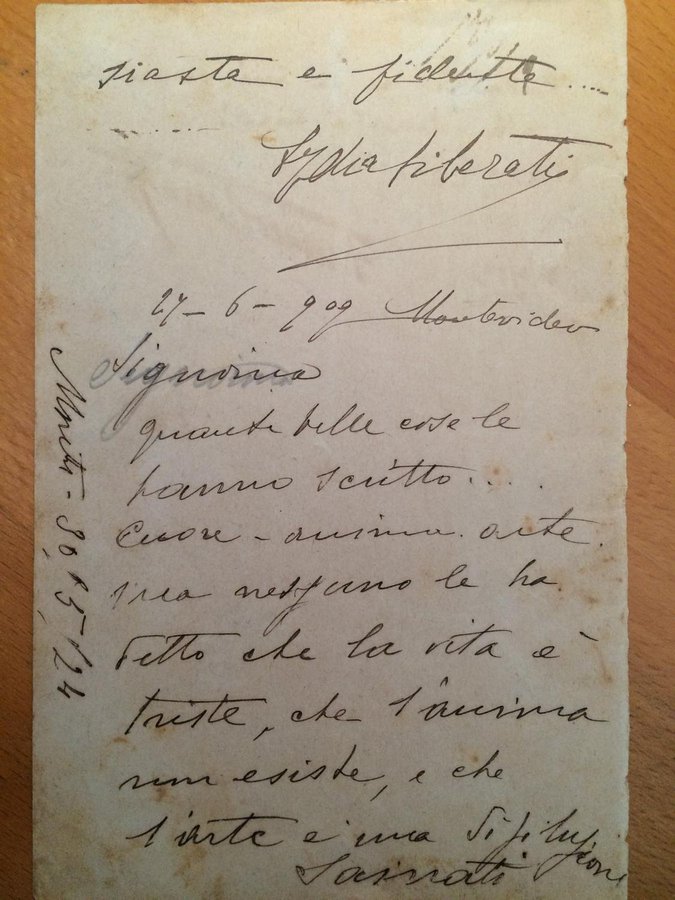 siasta e fidente.....
Lydia Liberati
27-6-909 Montevideo
Signorina
quante belle cose le
hanno scritto.....
Cuore - anima. arte.
ma nessuno le ha
detto che la vita è
triste, che l'anima
non esiste, e che
l'arte è una disilusione